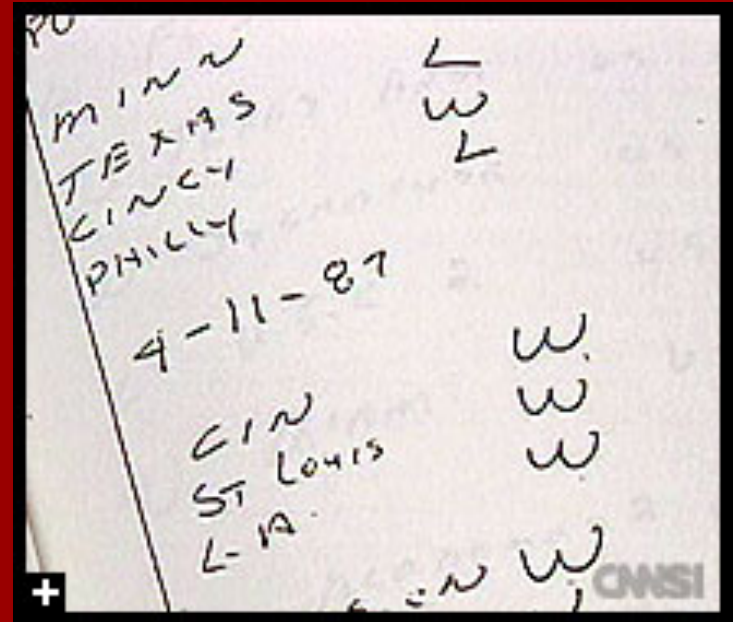 MINN L
TEXAS W
CINCY L
PHILLY
4-11-87
CIN W
ST LOUIS W
L.A. W
W
CNNSI